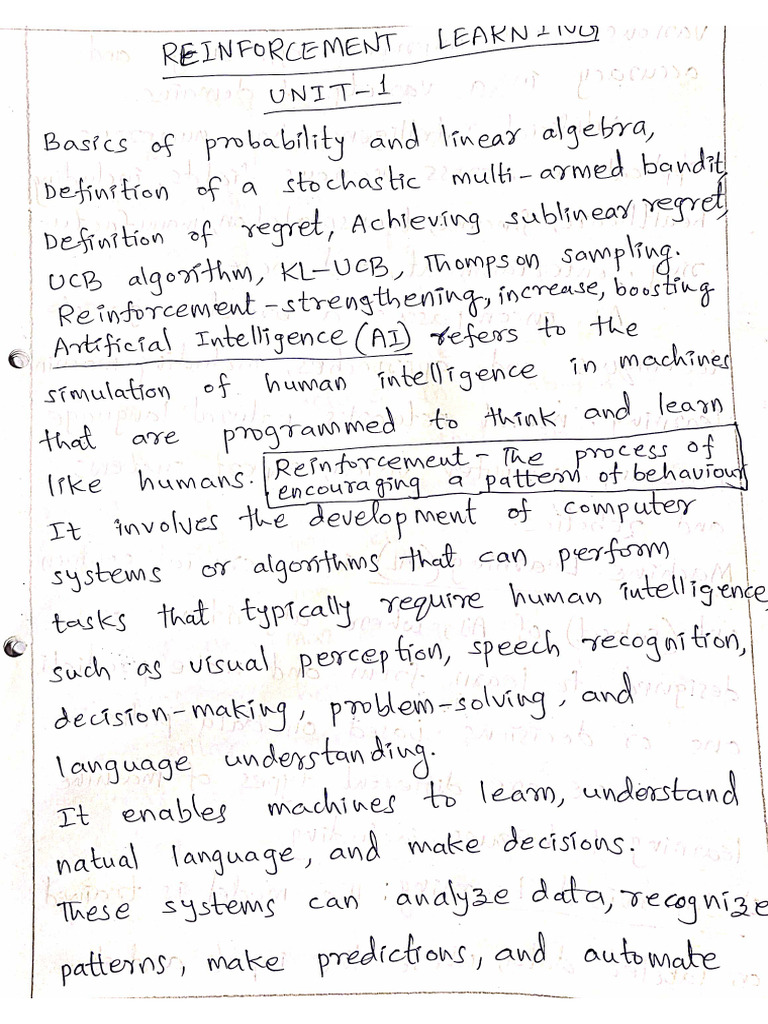 REINFORCEMENT LEARNING
UNIT-1
Basics of probability and linear algebra,
Definition of a stochastic multi-armed bandit,
Definition of regret, Achieving sublinear regret,
UCB algorithm, KL-UCB, Thompson sampling.
Reinforcement-strengthening, increase, boosting
Artificial Intelligence (AI) refers to the
simulation of human intelligence in machines
that are programmed to think and learn
like humans. Reinforcement - The process of
encouraging a pattern of behaviour
It involves the development of computer
systems or algorithms that can perform
tasks that typically require human intelligence,
such as visual perception, speech recognition,
decision-making, problem-solving, and
language understanding.
It enables machines to learn, understand
natual language, and make decisions.
These systems can analyze data, recognize
patterns, make predictions, and automate